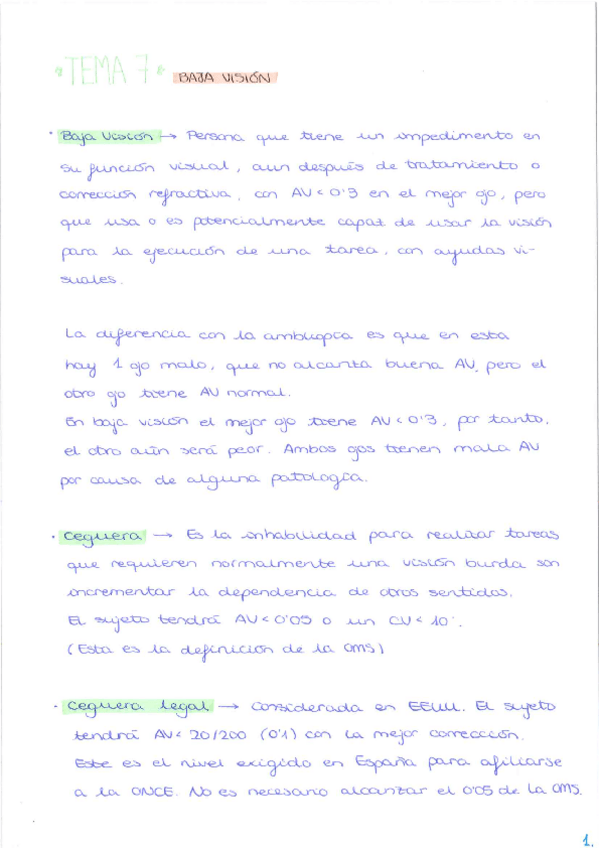 *TEMA 7* BAJA VISIÓN
· Baja Visión → Persona que tiene un impedimento en
su función visual, aun después de tratamiento o
corrección refractiva, con AV < 0'3 en el mejor ojo, pero
que usa o es potencialmente capaz de usar la visión
para la ejecución de una tarea, con ayudas vi-
suales.
La diferencia con la ambliopía es que en esta
hay 1 ojo malo, que no alcanza buena AV, pero el
otro ojo tiene AV normal.
En baja visión el mejor ojo tiene AV < 0'3, por tanto,
el otro aún será peor. Ambos ojos tienen mala AV
por causa de alguna patología.
· Ceguera → Es la inhabilidad para realizar tareas
que requieren normalmente una visión burda sin
incrementar la dependencia de otros sentidos.
El sujeto tendrá AV < 0'05 o un CV < 10°.
(Esta es la definición de la OMS)
· Ceguera legal → Considerada en EEUU. El sujeto
tendrá AV < 20/200 (0'1) con la mejor corrección.
Este es el nivel exigido en España para afiliarse
a la ONCE. No es necesario alcanzar el 0'05 de la OMS.
1.